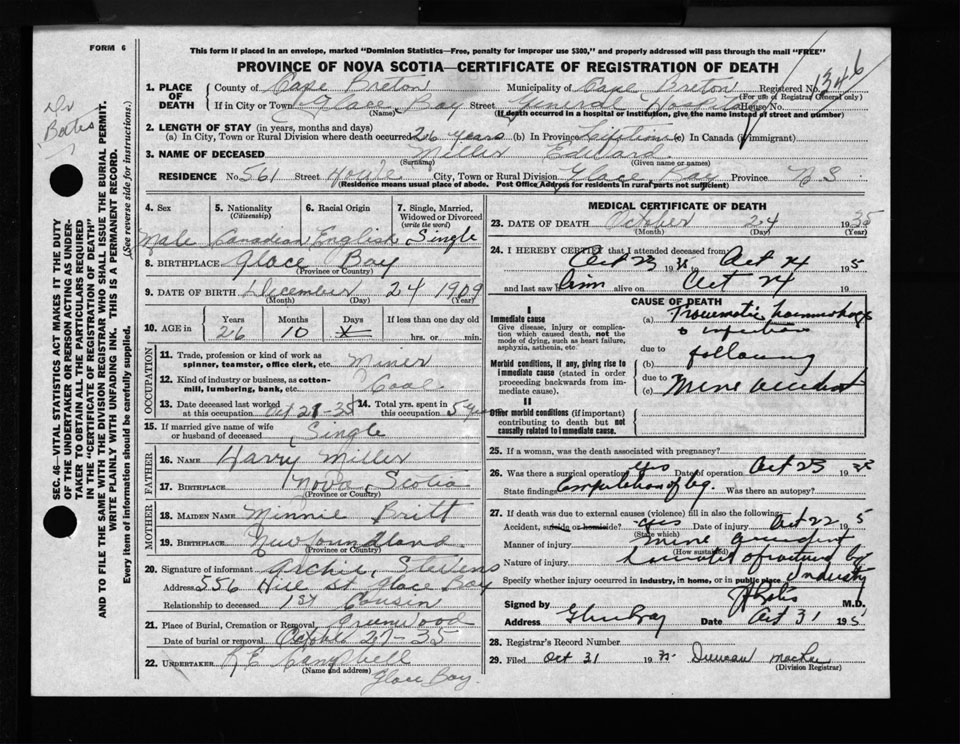 FORM 6
This form if placed in an envelope, marked "Dominion Statistics—Free, penalty for improper use $300," and properly addressed will pass through the mail "FREE"
PROVINCE OF NOVA SCOTIA—CERTIFICATE OF REGISTRATION OF DEATH
Dr Bates
SEC. 46—VITAL STATISTICS ACT MAKES IT THE DUTY
OF THE UNDERTAKER OR PERSON ACTING AS UNDER-
TAKER TO OBTAIN ALL THE PARTICULARS REQUIRED
IN THE "CERTIFICATE OF REGISTRATION OF DEATH"
AND TO FILE THE SAME WITH THE DIVISION REGISTRAR WHO SHALL ISSUE THE BURIAL PERMIT.
WRITE PLAINLY WITH UNFADING INK. THIS IS A PERMANENT RECORD.
Every item of information should be carefully supplied. (See reverse side for instructions.)
1. PLACE OF DEATH County of Cape Breton Municipality of Cape Breton Registered No. 1346
(For use of Registrar General only)
If in City or Town Glace Bay Street General Hospital House No.
(Name) (If death occurred in a hospital or institution, give the name instead of street and number)
2. LENGTH OF STAY (in years, months and days)
(a) In City, Town or Rural Division where death occurred 26 years (b) In Province Lifetime (c) In Canada (if immigrant)
3. NAME OF DECEASED Miller Edward
(Surname) (Given name or names)
RESIDENCE No. 561 Street City, Town or Rural Division Glace Bay Province N S
(Residence means usual place of abode. Post Office Address for residents in rural parts not sufficient)
4. Sex 5. Nationality (Citizenship) 6. Racial Origin 7. Single, Married, Widowed or Divorced (write the word)
Male Canadian English Single
8. BIRTHPLACE Glace Bay
(Province or Country)
9. DATE OF BIRTH December 24 1909
(Month) (Day) (Year)
10. AGE in Years Months Days If less than one day old
26 10 hrs. or min.
OCCUPATION
11. Trade, profession or kind of work as spinner, teamster, office clerk, etc. Miner
12. Kind of industry or business, as cotton-mill, lumbering, bank, etc. Coal
13. Date deceased last worked at this occupation Oct 21-35 14. Total yrs. spent in this occupation 5 years
15. If married give name of wife or husband of deceased Single
FATHER
16. NAME Harry Miller
17. BIRTHPLACE Nova Scotia
(Province or Country)
MOTHER
18. MAIDEN NAME Minnie Britt
19. BIRTHPLACE Newfoundland
(Province or Country)
20. Signature of informant Archie Stevens
Address 556 Hill St Glace Bay
Relationship to deceased 1st Cousin
21. Place of Burial, Cremation or Removal Greenwood
Date of burial or removal October 27-35
22. UNDERTAKER Campbell
(Name and address) Glace Bay
MEDICAL CERTIFICATE OF DEATH
23. DATE OF DEATH October 24 1935
(Month) (Day) (Year)
24. I HEREBY CERTIFY that I attended deceased from
Oct 23 1935 to Oct 24 195
and last saw him alive on Oct 24 19
CAUSE OF DEATH
I
Immediate cause
Give disease, injury or complication which caused death, not the mode of dying, such as heart failure, asphyxia, asthenia, etc.
(a) Traumatic hemorrhage & infection
due to
Morbid conditions, if any, giving rise to immediate cause (stated in order proceeding backwards from immediate cause).
(b) following
due to
(c) Mine accident
II
Other morbid conditions (if important) contributing to death but not causally related to immediate cause.
25. If a woman, was the death associated with pregnancy?
26. Was there a surgical operation? yes Date of operation Oct 23 1935
State findings Amputation of leg. Was there an autopsy?
27. If death was due to external causes (violence) fill in also the following:
Accident, suicide or homicide? yes Date of injury Oct 22 195
(State which)
Manner of injury mine accident
(How sustained)
Nature of injury leg
Specify whether injury occurred in industry, in home, or in public place Industry
Signed by M.D.
Address Glace Bay Date Oct 31 195
28. Registrar's Record Number
29. Filed Oct 31 1935 Duncan
(Division Registrar)